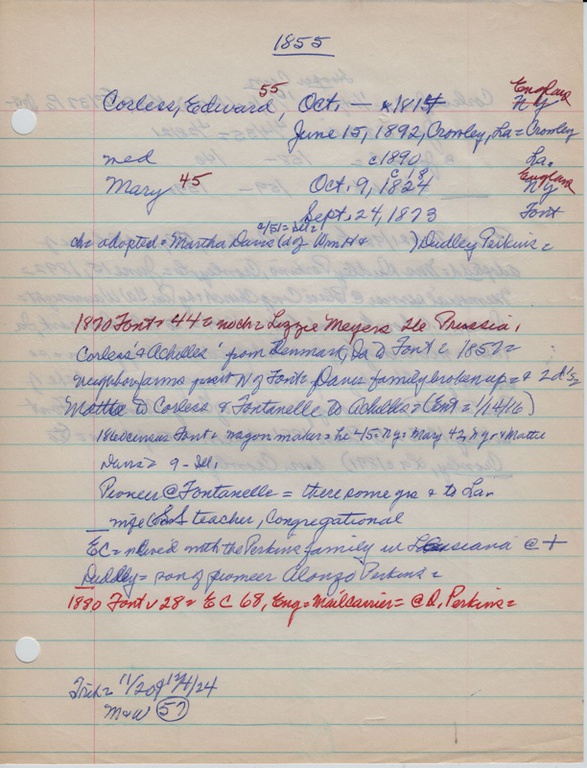 1855
Corless, Edward, 55 Oct. — 1815 England NY
June 15, 1892, Crowley, La = Crowley
med c1890 La.
Mary 45 Oct. 9, 1824 c18 England NY
Sept. 24, 1873 Font
ch= adopted = Martha Davis (d of Wm H & ) Dudley Perkins =
c/51= Ill=
1870 Font v 44 = noch= Lizzie Meyers 22 Prussia,
Corless' & Achilles' from Denmark, Ia to Font c 1857 =
neighbor farms N of Font= Davis family broken up = & 2 d's
Mattie to Corless & Fontanelle to Achilles = (Ent = 1/14/16)
1860 census Font v wagon maker = he 45 = Ny = Mary 42, Ny & Mattie
Davis = 9 - Ill.
Pioneer @ Fontanelle = there some yrs & to La.
wife SS teacher, Congregational
EC = with the Perkins family in Louisiana @ +
Dudley = son of pioneer Alonzo Perkins =
1880 Font v 28 = EC 68, Eng = Mailcarrier = @ D. Perkins =
11/20 & 12/4/24
M&W 57